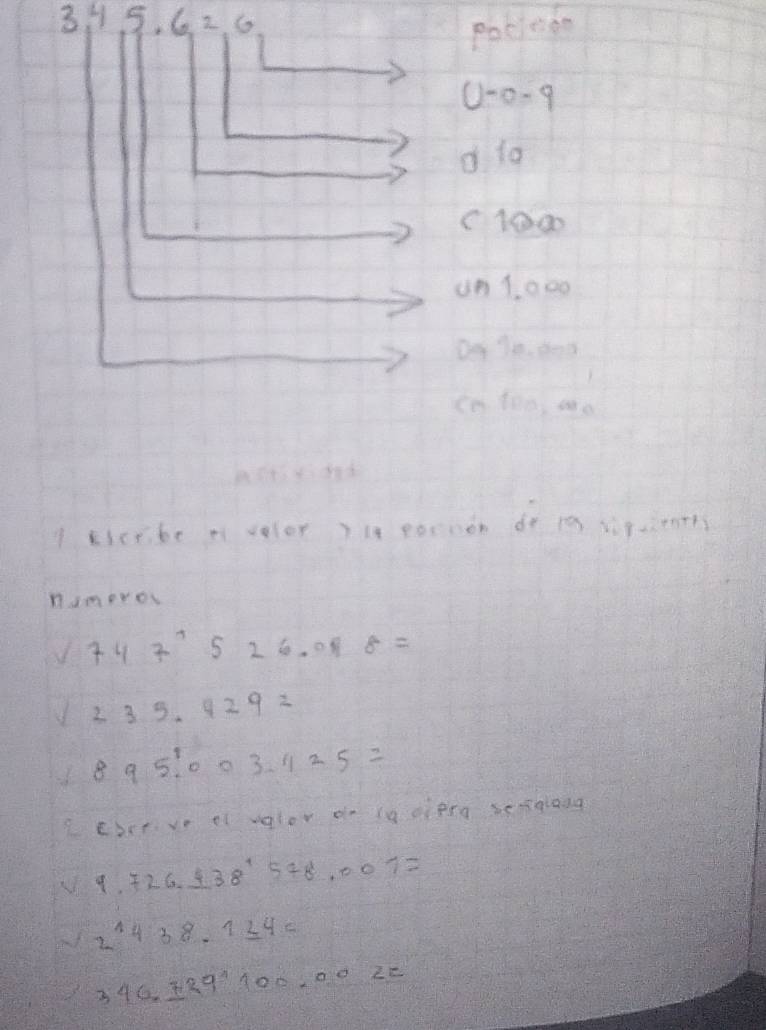 345.626
posición
U-0-9
d 10
c 1000
um 1.000
Dm 10.000
cm 100,000
actividad
1 escribe el valor y la posición de los siguientes
numeros
√ 747' 526.048 =
√ 235.429 =
√ 895'.003.425 =
2 escrive el valor de la cifra señalada
√ 9.726.438' 578.001 =
√ 2'438.124 =
√ 346.789' 100.002 =